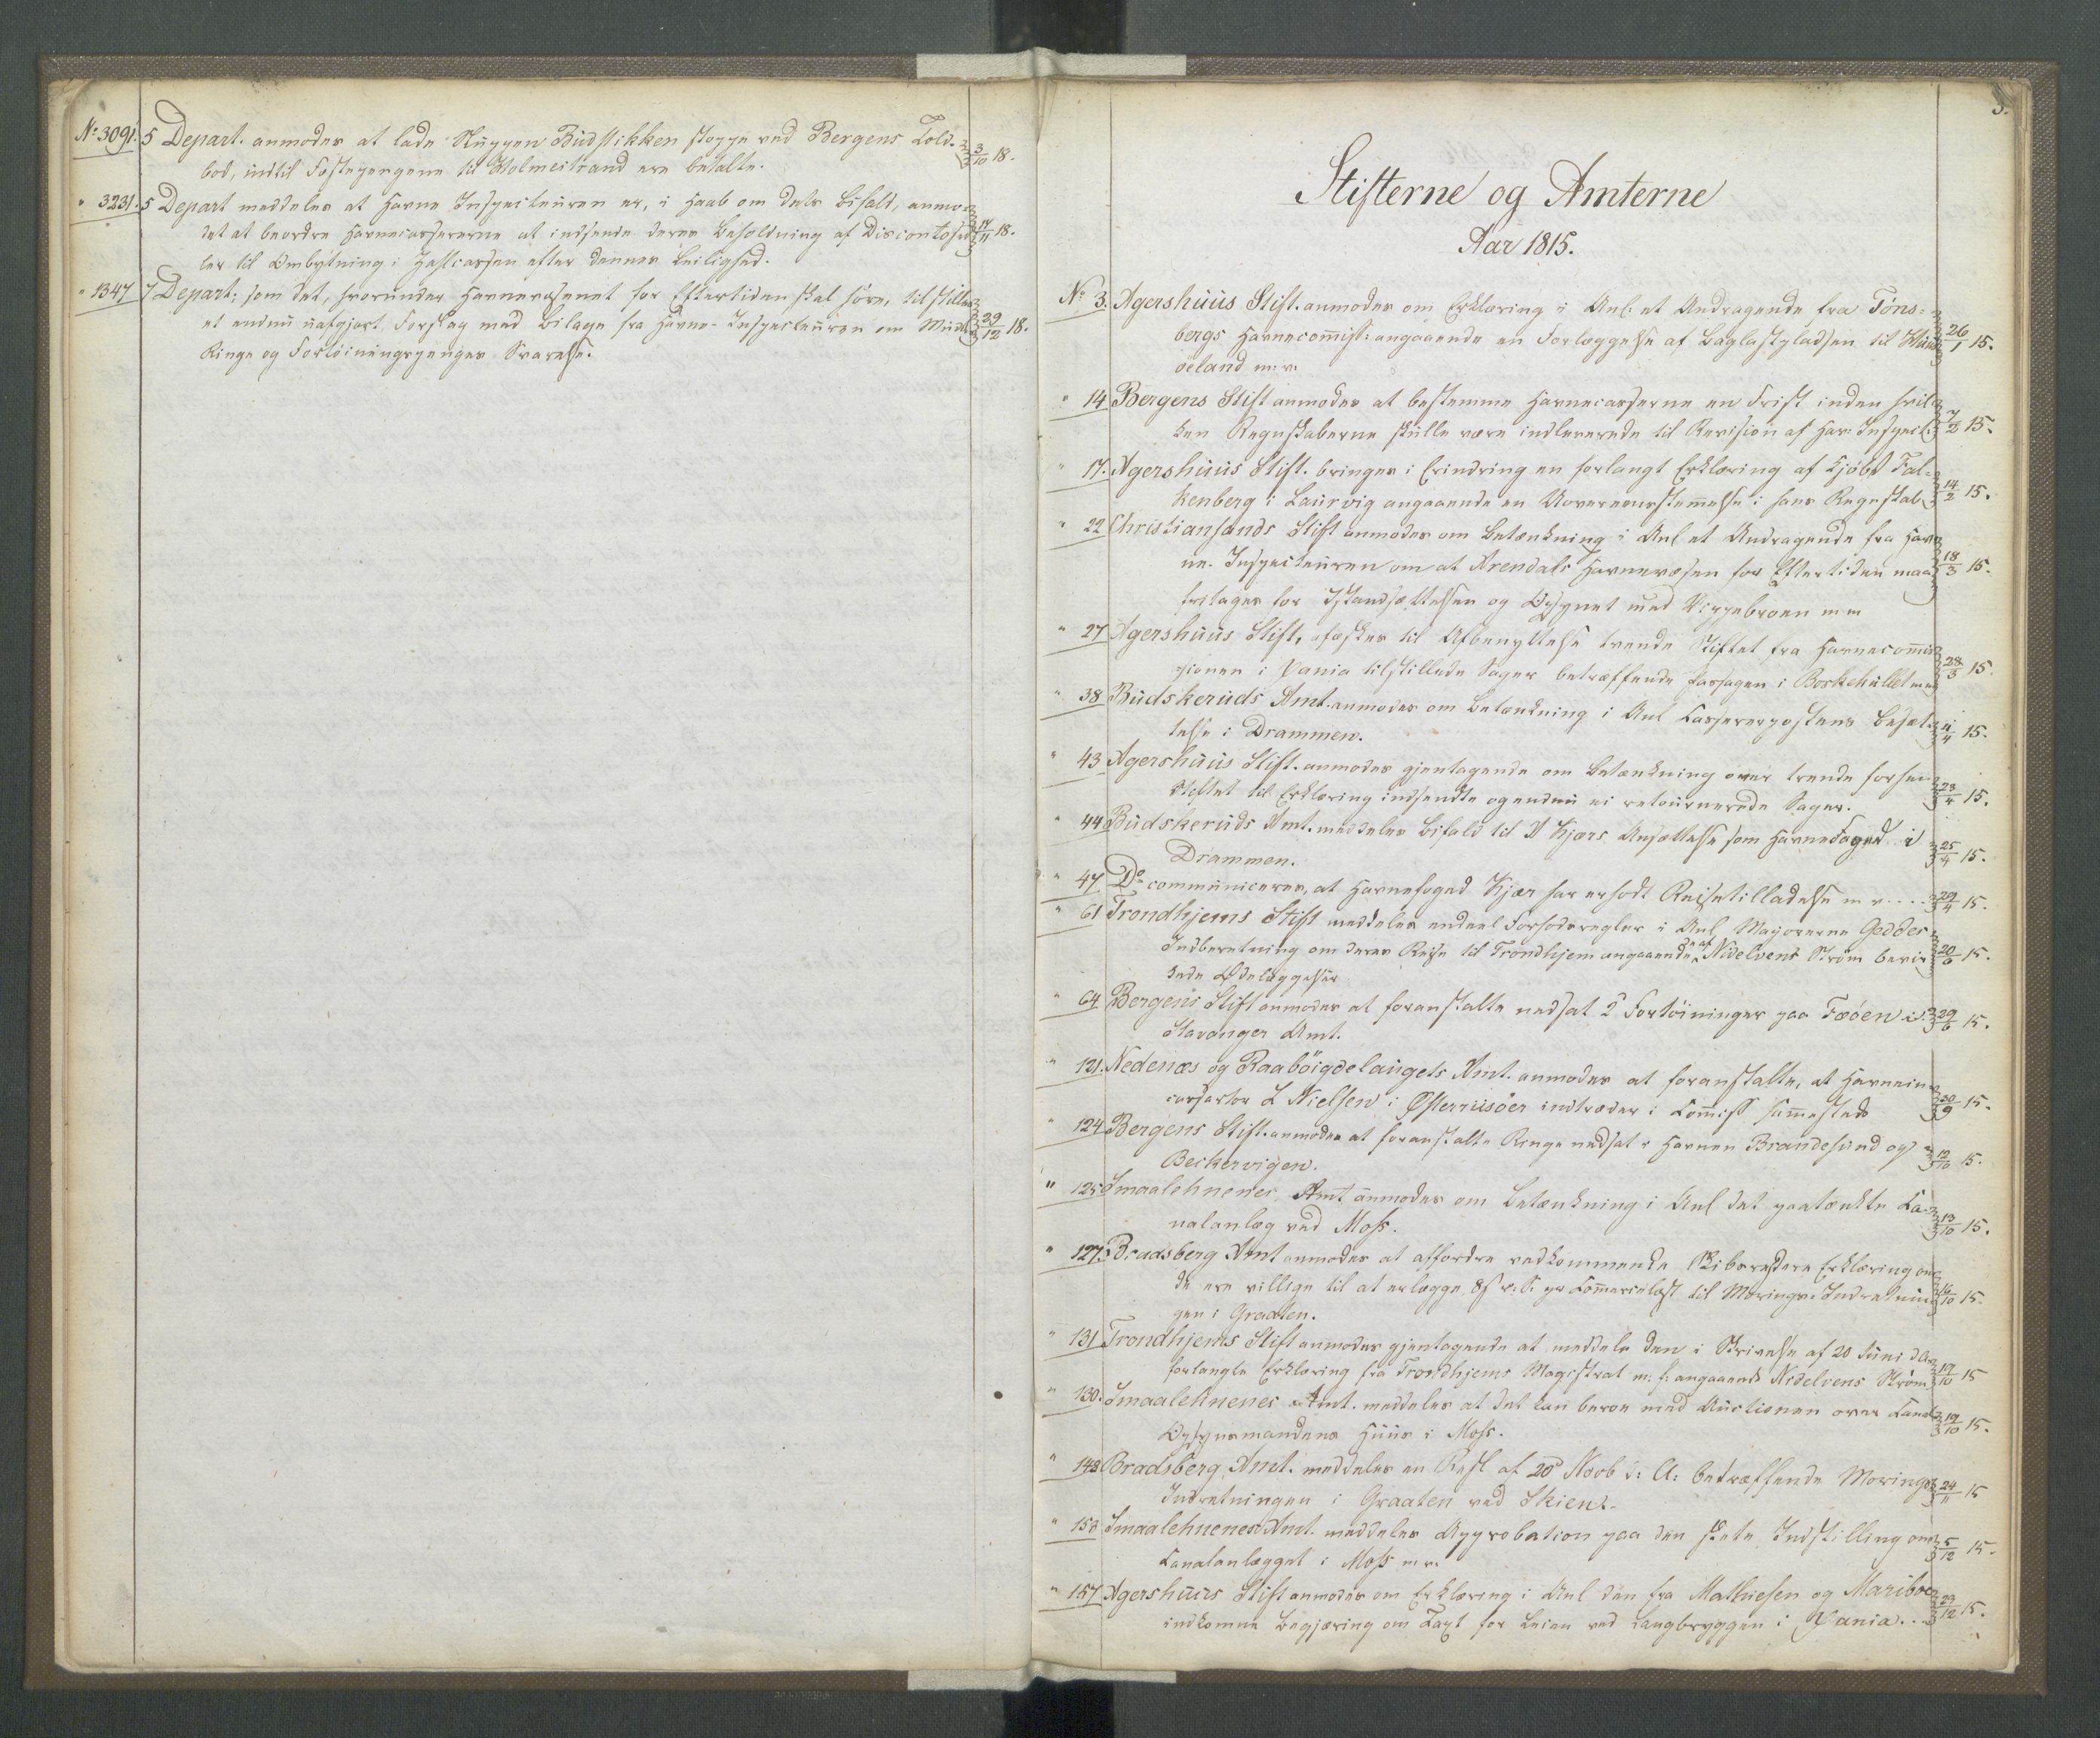 No 3091. 5 Depart. anmodes at lade Skuppen Budstikken stoppe ved Bergens Told- 3/10 18.
bod, indtil Fæstepengene til Holmestrand ere betalte.
" 3231. 5 Depart meddeles at Havne Inspecteuren er, i Haab om dets Bifald, anmo-
det at beordre Havnecassererne at indsende deres Beholdning af Discontosed- 17/11 18.
ler til Ombytning i Zahlcassen efter dennes Leilighed.
" 1347 7 Depart: som det, hvorunder Havnevæsenet for Eftertiden skal høre, tilstilles
et endnu uafgjort Forslag med Bilage fra Havne-Inspecteuren om 29/12 18.
Ringe og Fortøiningspenges Svarelse.
3.
Stifterne og Amterne
Aar 1815.
No 3. Agershuus Stift. anmodes om Erklæring i Anl: et Andragende fra Töns-
bergs Havnecommiss: angaaende en Forlæggelse af Baglastpladsen til Huus- 26/1 15.
øeland m: v.
" 14 Bergens Stift anmodes at bestemme Havnecasserne en Frist inden hvil-
ken Regnskaberne skulle være indleverede til Revision af Hav: Inspect: 7/2 15.
" 17. Agershuus Stift. bringes i Erindring en forlangt Erklæring af Kjöbm Fal-
kenberg i Laurvig angaaende en Uovereensstemmelse i hans Regnskab 14/2 15.
" 22 Christiansands Stift anmodes om Betænkning i Anl et Andragende fra Hav-
ne-Inspecteuren om at Arendals Havnevæsen for Eftertiden maa 18/3 15.
fritages for Istandsættelsen og Opsynet med Vippebroen m m
" 27 Agershuus Stift, afæskes til Afbenyttelse trende Stiftet fra Havnecommis-
sionen i Xania tilstillede Sager betræffende Passagen i Boskehullet m m 28/3 15.
" 38 Budskeruds Amt. anmodes om Betænkning i Anl Cassererpostens Besæt-
telse i Drammen. 11/4 15.
" 43 Agershuus Stift. anmodes gjentagende om Betænkning over trende forhen
Stiftet til Erklæring indsendte og endnu ei retournerede Sager. 23/4 15.
" 44 Budskeruds Amt. meddeles Bifald til N Kjærs Ansættelse som Havnefoged i
Drammen. 25/4 15.
" 47 Do communiceres, at Havnefoged Kjær har erholdt Reisetilladelse m v.... 29/4 15.
" 61 Trondhjems Stift meddeles endeel Forholdsregler i Anl Majorerne Geddes
Indberetning om deres Reise til Trondhjem angaaende de af Nidelvens Ström bevir- 20/6 15.
kede Ødelæggelser
" 64 Bergens Stift anmodes at foranstalte nedsat 2 Fortöininger paa Fæöen i 29/6 15.
Stavanger Amt.
" 121. Nedenæs og Raaböigdelaugets Amt. anmodes at foranstalte, at Havnein-
cassator L Nielsen i Österriisöer indtræder i Commiss sammesteds 30/9 15.
" 124 Bergens Stift. anmodes at foranstalte Ringe nedsat i Havnen Brandesund og
Beckervigen. 12/10 15.
" 125 Smaalehnenes Amt anmodes om Betænkning i Anl det paatænkte Ca-
nalanlæg ved Moss. 13/10 15.
" 127. Bradsberg Amt anmodes at affordre vedkommende Skibsredere Erklæring om
de ere villige til at erlægge 8 s r: S: pr Commercelæst til Morings-Indretnin- 16/10 15.
gen i Graaten.
" 131 Trondhjems Stift anmodes gjentagende at meddele den i Skrivelse af 20 Juni d A
forlangte Erklæring fra Trondhjems Magistrat m: f: angaaende Nidelvens Ström 19/10 15
" 130. Smaalehnenes Amt. meddeles at det kan beroe med Auctionen over Canal-
Opsynsmandens Huus i Moss. 19/10 15.
" 148 Bradsberg Amt. meddeles en Resl af 20 Novb d: A: betræffende Morings-
Indretningen i Graaten ved Skien. 24/11 15
" 153 Smaalehnenes Amt. meddeles Approbation paa den skete Indstilling om
Canalanlægget i Moss m v. 5/12 15.
" 157 Agershuus Stift anmodes om Erklæring i Anl den fra Mathiesen og Mariboe
indkomne Begjæring om Taxt for Leien ved Langbryggen i Xania... 23/12 15.